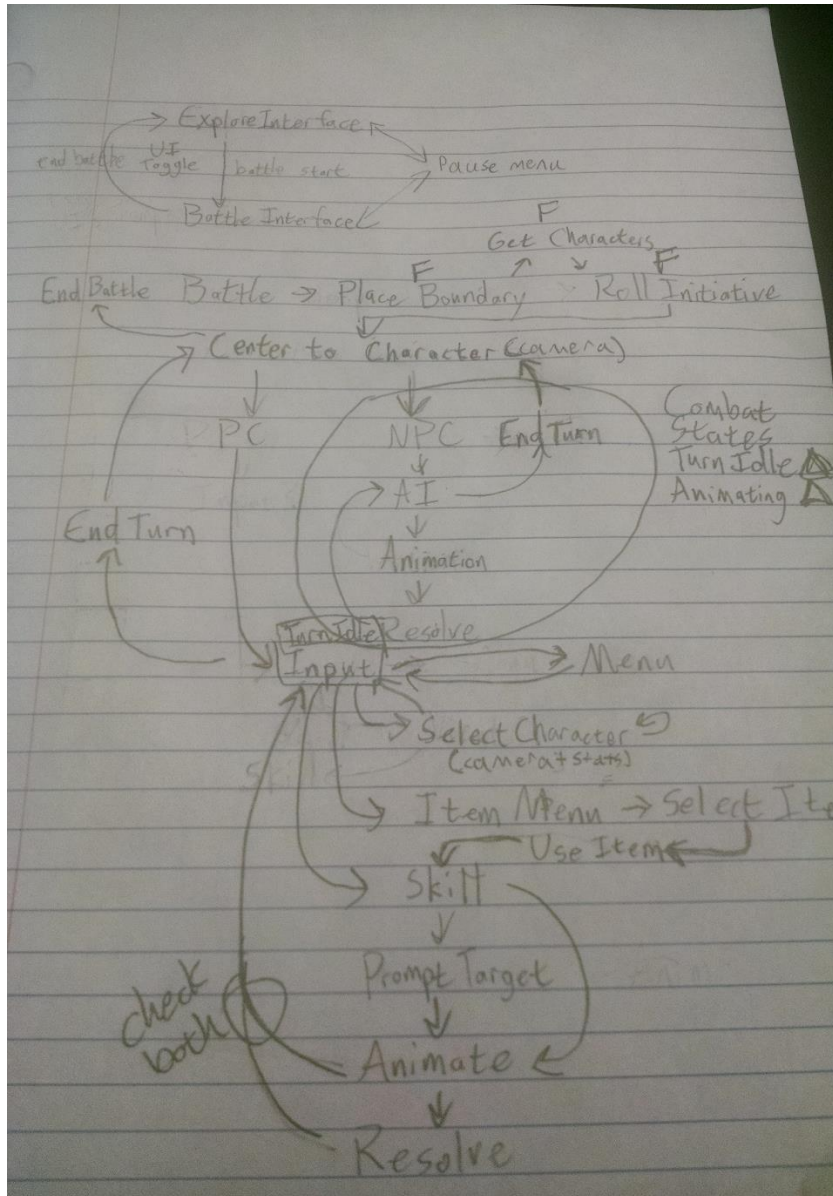 Explore Interface
end battle UI Toggle battle start
Pause menu
Battle Interface
F
Get Characters
F
F
End Battle Battle → Place Boundary Roll Initiative
Center to Character (camera)
PC NPC End Turn
Combat
States
Turn Idle
Animating
AI
End Turn
Animation
Turn Idle Resolve
Input Menu
Select Character
(camera + stats)
Item Menu → Select Ite
Use Item
Skill
Prompt Target
check
both
Animate
Resolve